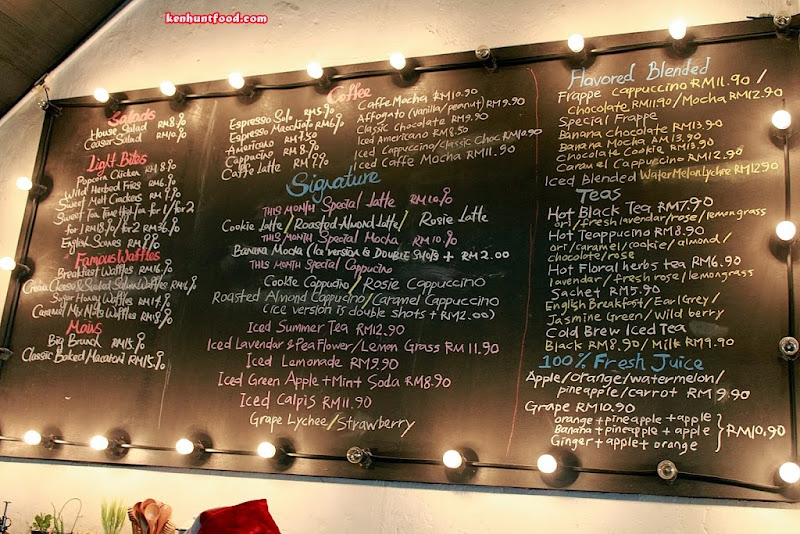 kenhuntfood.com
Salads
House Salad RM8.90
Ceaser Salad RM10.90
Light Bites
Popcorn Chicken RM8.90
Wild Herbed Fries RM6.90
Sweet Malt Crackers RM7.90
Sweet Tea Time High Tea for 1/for 2
for 1 RM18.90/for 2 RM36.90
English Scones RM9.90
Famous Waffles
Breakfast Waffles RM16.90
Cream Cheese & Smoked Salmon Waffles RM19.90
Sugar Honey Waffles RM14.90
Caramel Mix Nuts Waffles RM18.90
Mains
Big Brunch RM19.90
Classic Baked Macaroni RM15.90
Coffee
Espresso Solo RM5.90
Espresso Macchiato RM6.90
Americano RM7.50
Cappucino RM8.90
Caffe Latte RM9.90
Caffe Mocha RM10.90
Affogato (vanilla/peanut) RM9.90
Classic Chocolate RM9.90
Iced Americano RM8.50
Iced Cappuccino/classic Choc RM10.90
Iced Caffe Mocha RM11.90
Signature
THIS MONTH Special Latte RM10.90
Cookie Latte/Roasted Almond Latte/ Rosie Latte
THIS MONTH Special Mocha RM10.90
Banana Mocha (Ice version is DOUBLE SHOTS + RM2.00
THIS MONTH Special Cappucino
Cookie Cappucino/Rosie Cappuccino
Roasted Almond Cappucino/Caramel Cappuccino
(ice version is double shots + RM2.00)
Iced Summer Tea RM12.90
Iced Lavendar & Pea Flower/Lemon Grass RM11.90
Iced Lemonade RM9.90
Iced Green Apple + Mint Soda RM8.90
Iced Calpis RM11.90
Grape Lychee/Strawberry
Flavored Blended
Frappe cappuccino RM11.90/
Chocolate RM11.90/Mocha RM12.90
Special Frappe
Banana chocolate RM13.90
Banana Mocha RM13.90
Chocolate Cookie RM13.90
Caramel Cappuccino RM12.90
Iced Blended WaterMelon Lychee RM12.90
Teas
Hot Black Tea RM7.90
ori/fresh lavendar/rose/lemongrass
Hot Teappucino RM8.90
ori/caramel/cookie/almond/
chocolate/rose
Hot Floral herbs tea RM6.90
lavendar/fresh rose/lemongrass
Sachet RM5.90
English Breakfast/Earl Grey/
Jasmine Green/Wild berry
Cold Brew Iced Tea
Black RM8.90/Milk RM9.90
100% Fresh Juice
Apple/orange/watermelon/
pineapple/carrot RM9.90
Grape RM10.90
orange + pineapple + apple
Banana + pineapple + apple
Ginger + apple + orange
RM10.90